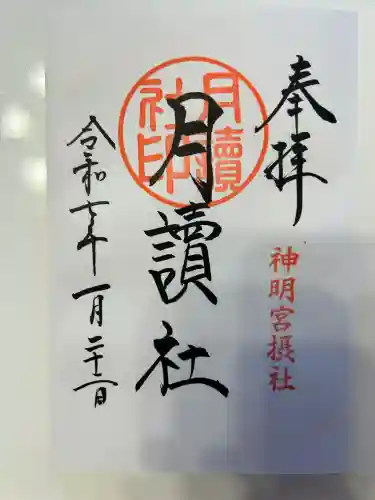 奉拝
神明宮摂社
月讀社
月讀社印
令和七年一月二十二日